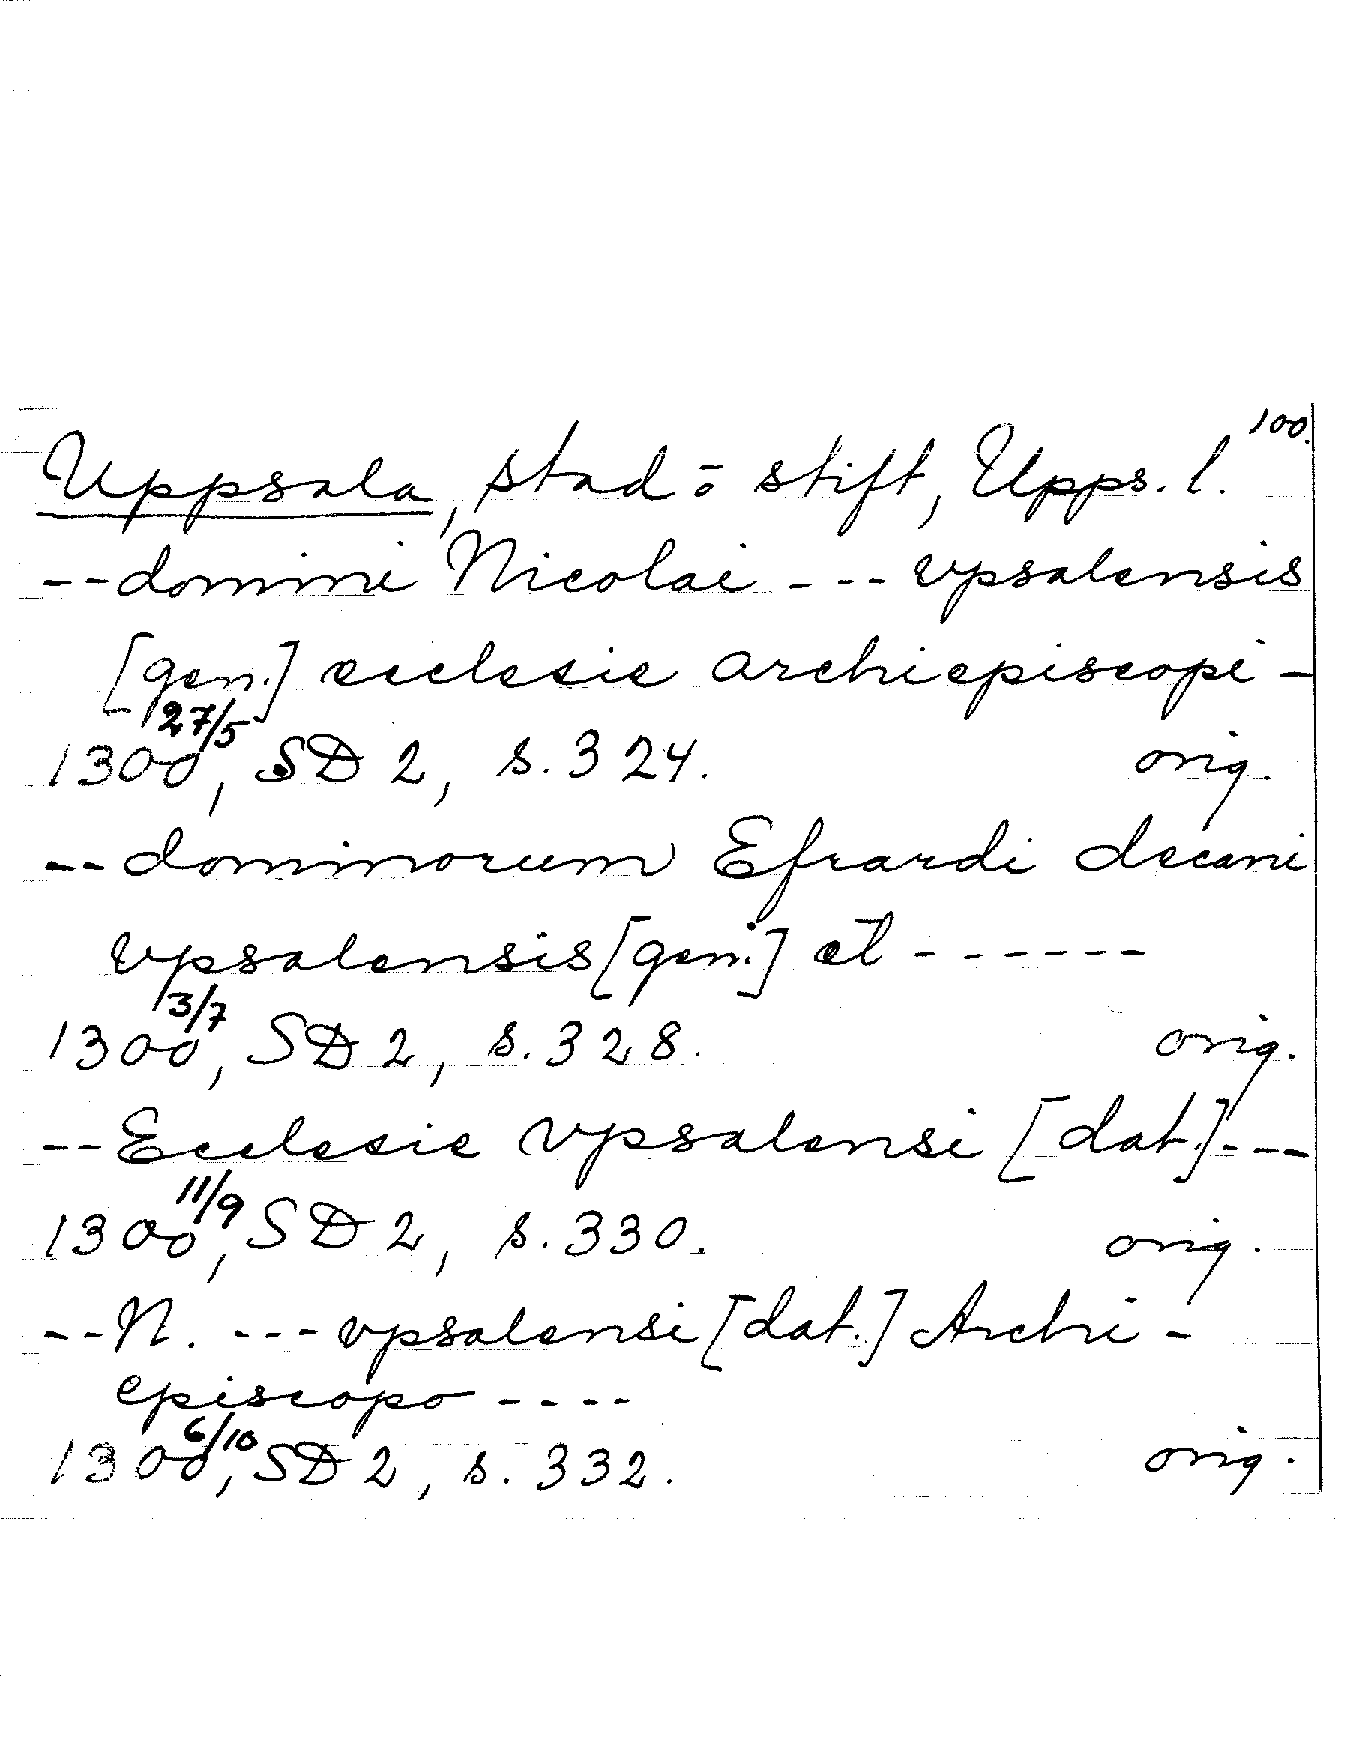 100.
Uppsala, stad o stift, Upps. l.
-- domini Nicolai --- vpsalensis
[gen.] ecclesie archiepiscopi -
1300 27/5, SD 2, s. 324. orig.
-- dominorum Efrardi decani
vpsalensis [gen.] et ------
1300 3/7, SD 2, s. 328. orig.
-- Ecclesie vpsalensi [dat.] ---
1300 11/9, SD 2, s. 330. orig.
-- N. --- vpsalensi [dat.] Archi-
episcopo ----
1300 6/10, SD 2, s. 332. orig.